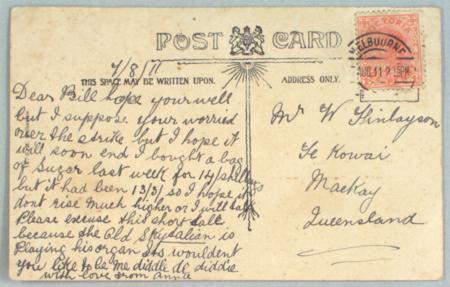 POST CARD
VICTORIA
MELBOURNE
7/8/11
THIS SPACE MAY BE WRITTEN UPON.
ADDRESS ONLY.
Dear Bill hope your well
but I suppose your worried
over the strike but I hope it
will soon end I bought a bag
of sugar last week for 14/shills
but it had been 13/3 so I hope it
dont rise much higher or I will
Please excuse this short
because the Old Skytalian is
Playing his organ wouldent
you like to be me diddle de diddle
with love from annie
Mr W Finlayson
Te Kowai
Mackay
Queensland